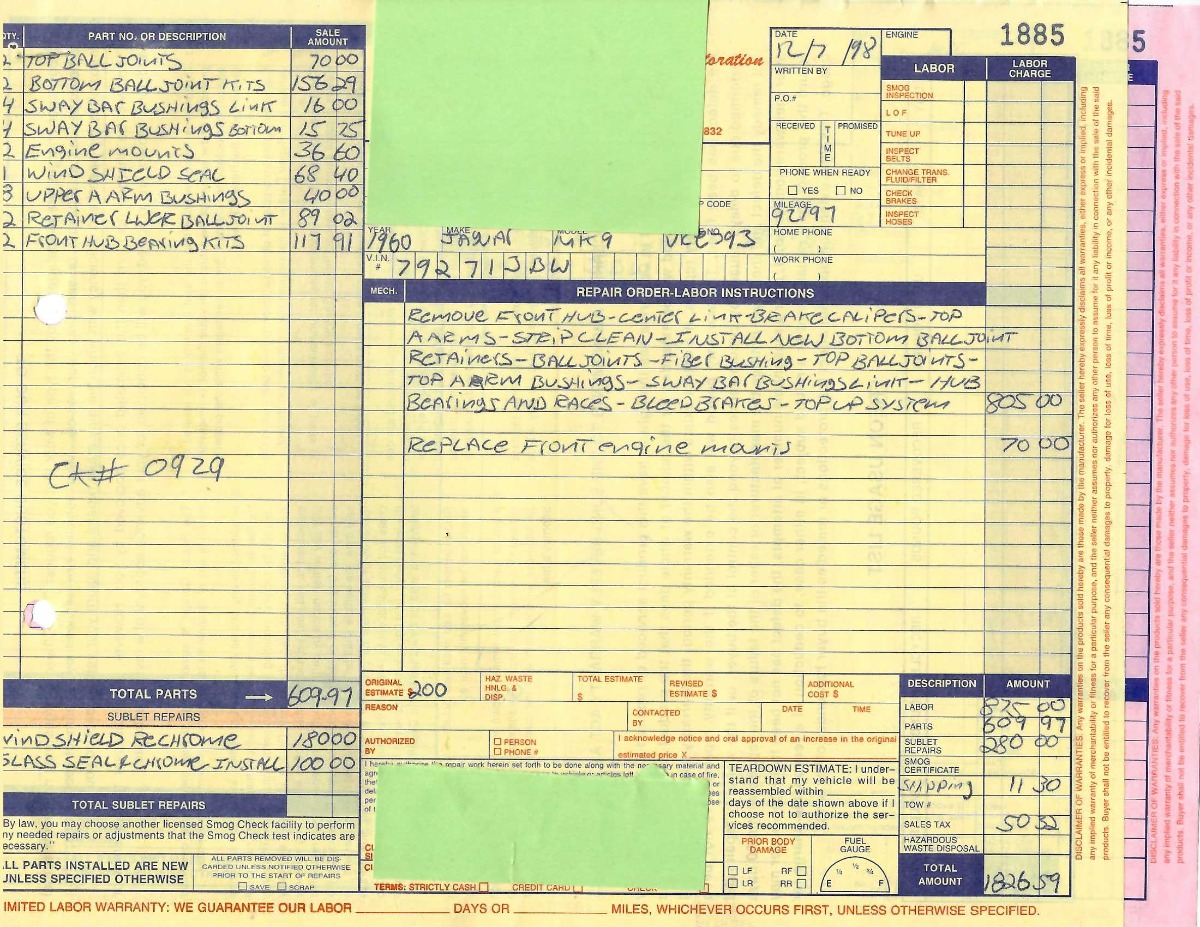 QTY. PART NO. OR DESCRIPTION SALE AMOUNT
2 TOP BALL JOINTS 70 00
2 BOTTOM BALL JOINT KITS 156 29
4 SWAY BAR BUSHINGS LINK 16 00
4 SWAY BAR BUSHINGS BOTTOM 15 75
2 Engine mounts 36 60
1 WIND SHIELD SEAL 68 40
8 UPPER A ARM BUSHINGS 40 00
2 RETAINER LWER BALL JOINT 89 02
2 FRONT HUB BEARING KITS 117 91
CK# 0929
TOTAL PARTS 609.97
SUBLET REPAIRS
WIND SHIELD RECHROME 180 00
GLASS SEAL & CHROME INSTALL 100 00
TOTAL SUBLET REPAIRS
By law, you may choose another licensed Smog Check facility to perform
ny needed repairs or adjustments that the Smog Check test indicates are
ecessary."
LL PARTS INSTALLED ARE NEW
UNLESS SPECIFIED OTHERWISE
ALL PARTS REMOVED WILL BE DIS-
CARDED UNLESS NOTIFIED OTHERWISE
PRIOR TO THE START OF REPAIRS
SAVE SCRAP
oration
832
DATE 12/7/98
WRITTEN BY
P.O.#
RECEIVED TIME PROMISED
PHONE WHEN READY
YES NO
P CODE
MILEAGE 92197
HOME PHONE
( )
WORK PHONE
( )
YEAR 1960 MAKE JAWAR MODEL MK9 NO. VKE 593
V.I.N. # 79271JBW
ENGINE
1885
85
LABOR LABOR CHARGE
SMOG INSPECTION
L O F
TUNE UP
INSPECT BELTS
CHANGE TRANS. FLUID/FILTER
CHECK BRAKES
INSPECT HOSES
MECH. REPAIR ORDER-LABOR INSTRUCTIONS
REMOVE FRONT HUB-CENTER LINK-BRAKE CALIPERS-TOP
A ARMS-STRIP CLEAN-INSTALL NEW BOTTOM BALL JOINT
RETAINERS-BALL JOINTS-FIBER BUSHING-TOP BALL JOINTS-
TOP A ARM BUSHINGS-SWAY BAR BUSHINGS LINK-HUB
BEARINGS AND RACES-BLEED BRAKES-TOP UP SYSTEM 805 00
REPLACE FRONT engine mounts 70 00
ORIGINAL ESTIMATE $ 200
HAZ. WASTE HNLG. & DISP. $
TOTAL ESTIMATE
REVISED ESTIMATE $
ADDITIONAL COST $
REASON
CONTACTED BY
DATE
TIME
AUTHORIZED BY
PERSON
PHONE #
I acknowledge notice and oral approval of an increase in the original
estimated price X
TEARDOWN ESTIMATE: I under-
stand that my vehicle will be
reassembled within
days of the date shown above if I
choose not to authorize the ser-
vices recommended.
PRIOR BODY DAMAGE
LF RF
LR RR
FUEL GAUGE
E ¼ ½ ¾ F
TERMS: STRICTLY CASH CREDIT CARD CHECK
DESCRIPTION AMOUNT
LABOR 875 00
PARTS 609 97
SUBLET REPAIRS 280 00
SMOG CERTIFICATE
SHIPPING 11 30
TOW #
SALES TAX 50 32
HAZARDOUS WASTE DISPOSAL
TOTAL AMOUNT 1826 59
IMITED LABOR WARRANTY: WE GUARANTEE OUR LABOR DAYS OR MILES, WHICHEVER OCCURS FIRST, UNLESS OTHERWISE SPECIFIED.
DISCLAIMER OF WARRANTIES: Any warranties on the products sold hereby are those made by the manufacturer. The seller hereby expressly disclaims all warranties, either express or implied, including
any implied warranty of merchantability or fitness for a particular purpose, and the seller neither assumes nor authorizes any other person to assume for it any liability in connection with the sale of the said
products. Buyer shall not be entitled to recover from the seller any consequential damages to property, damage for loss of use, loss of time, loss of profit or income, or any other incidental damages.